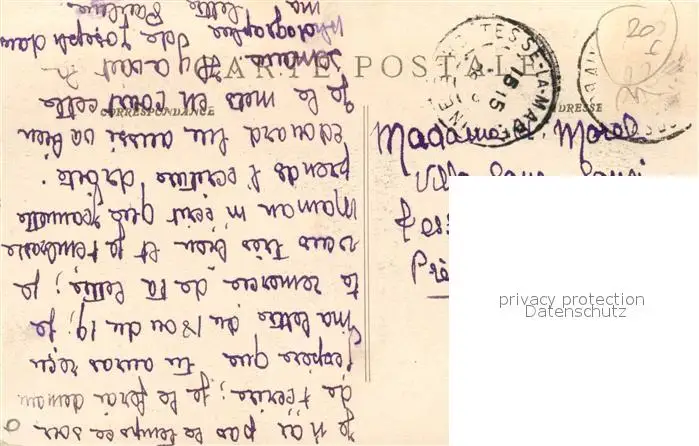 CARTE POSTALE
CORRESPONDANCE
ADRESSE
TESSE-LA-MADE
15 15
Madame Morel
Villa Sans Souci
Je n'ai pas le temps ce soir
de t'écrire; je le ferai demain
J'espère que tu auras reçu
ma lettre du 18 ou du 19; je
te remercie de ta lettre; je
vais très bien et je t'embrasse
Maman m'écrit que Jeannette
prends l'écriture droite.
Edouard lui aussi va bien
Je le mets en court cette
semaine. Il y avait
photographie de Joseph dans
ma lettre
privacy protection
Datenschutz